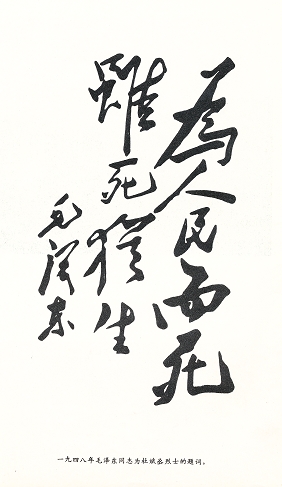 為人民而死
雖死猶生
毛泽东
一九四八年毛泽东同志为杜斌丞烈士的题词。